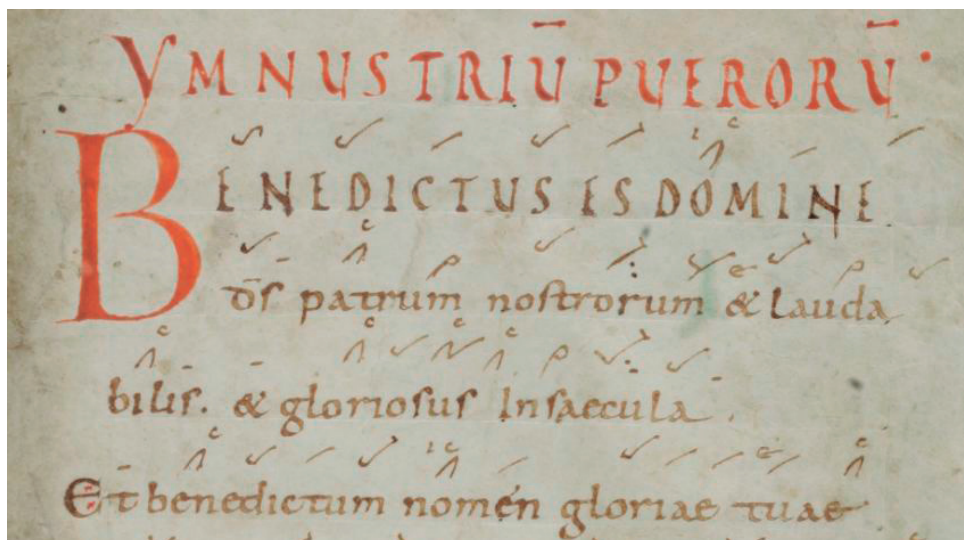 YMNUS TRIŪ PUERORŪ·
BENEDICTUS ES DOMINE
d̄s patrum nostrorum & lauda
bilis. & gloriosus Insaecula.
Et benedictum nomen gloriae tuae